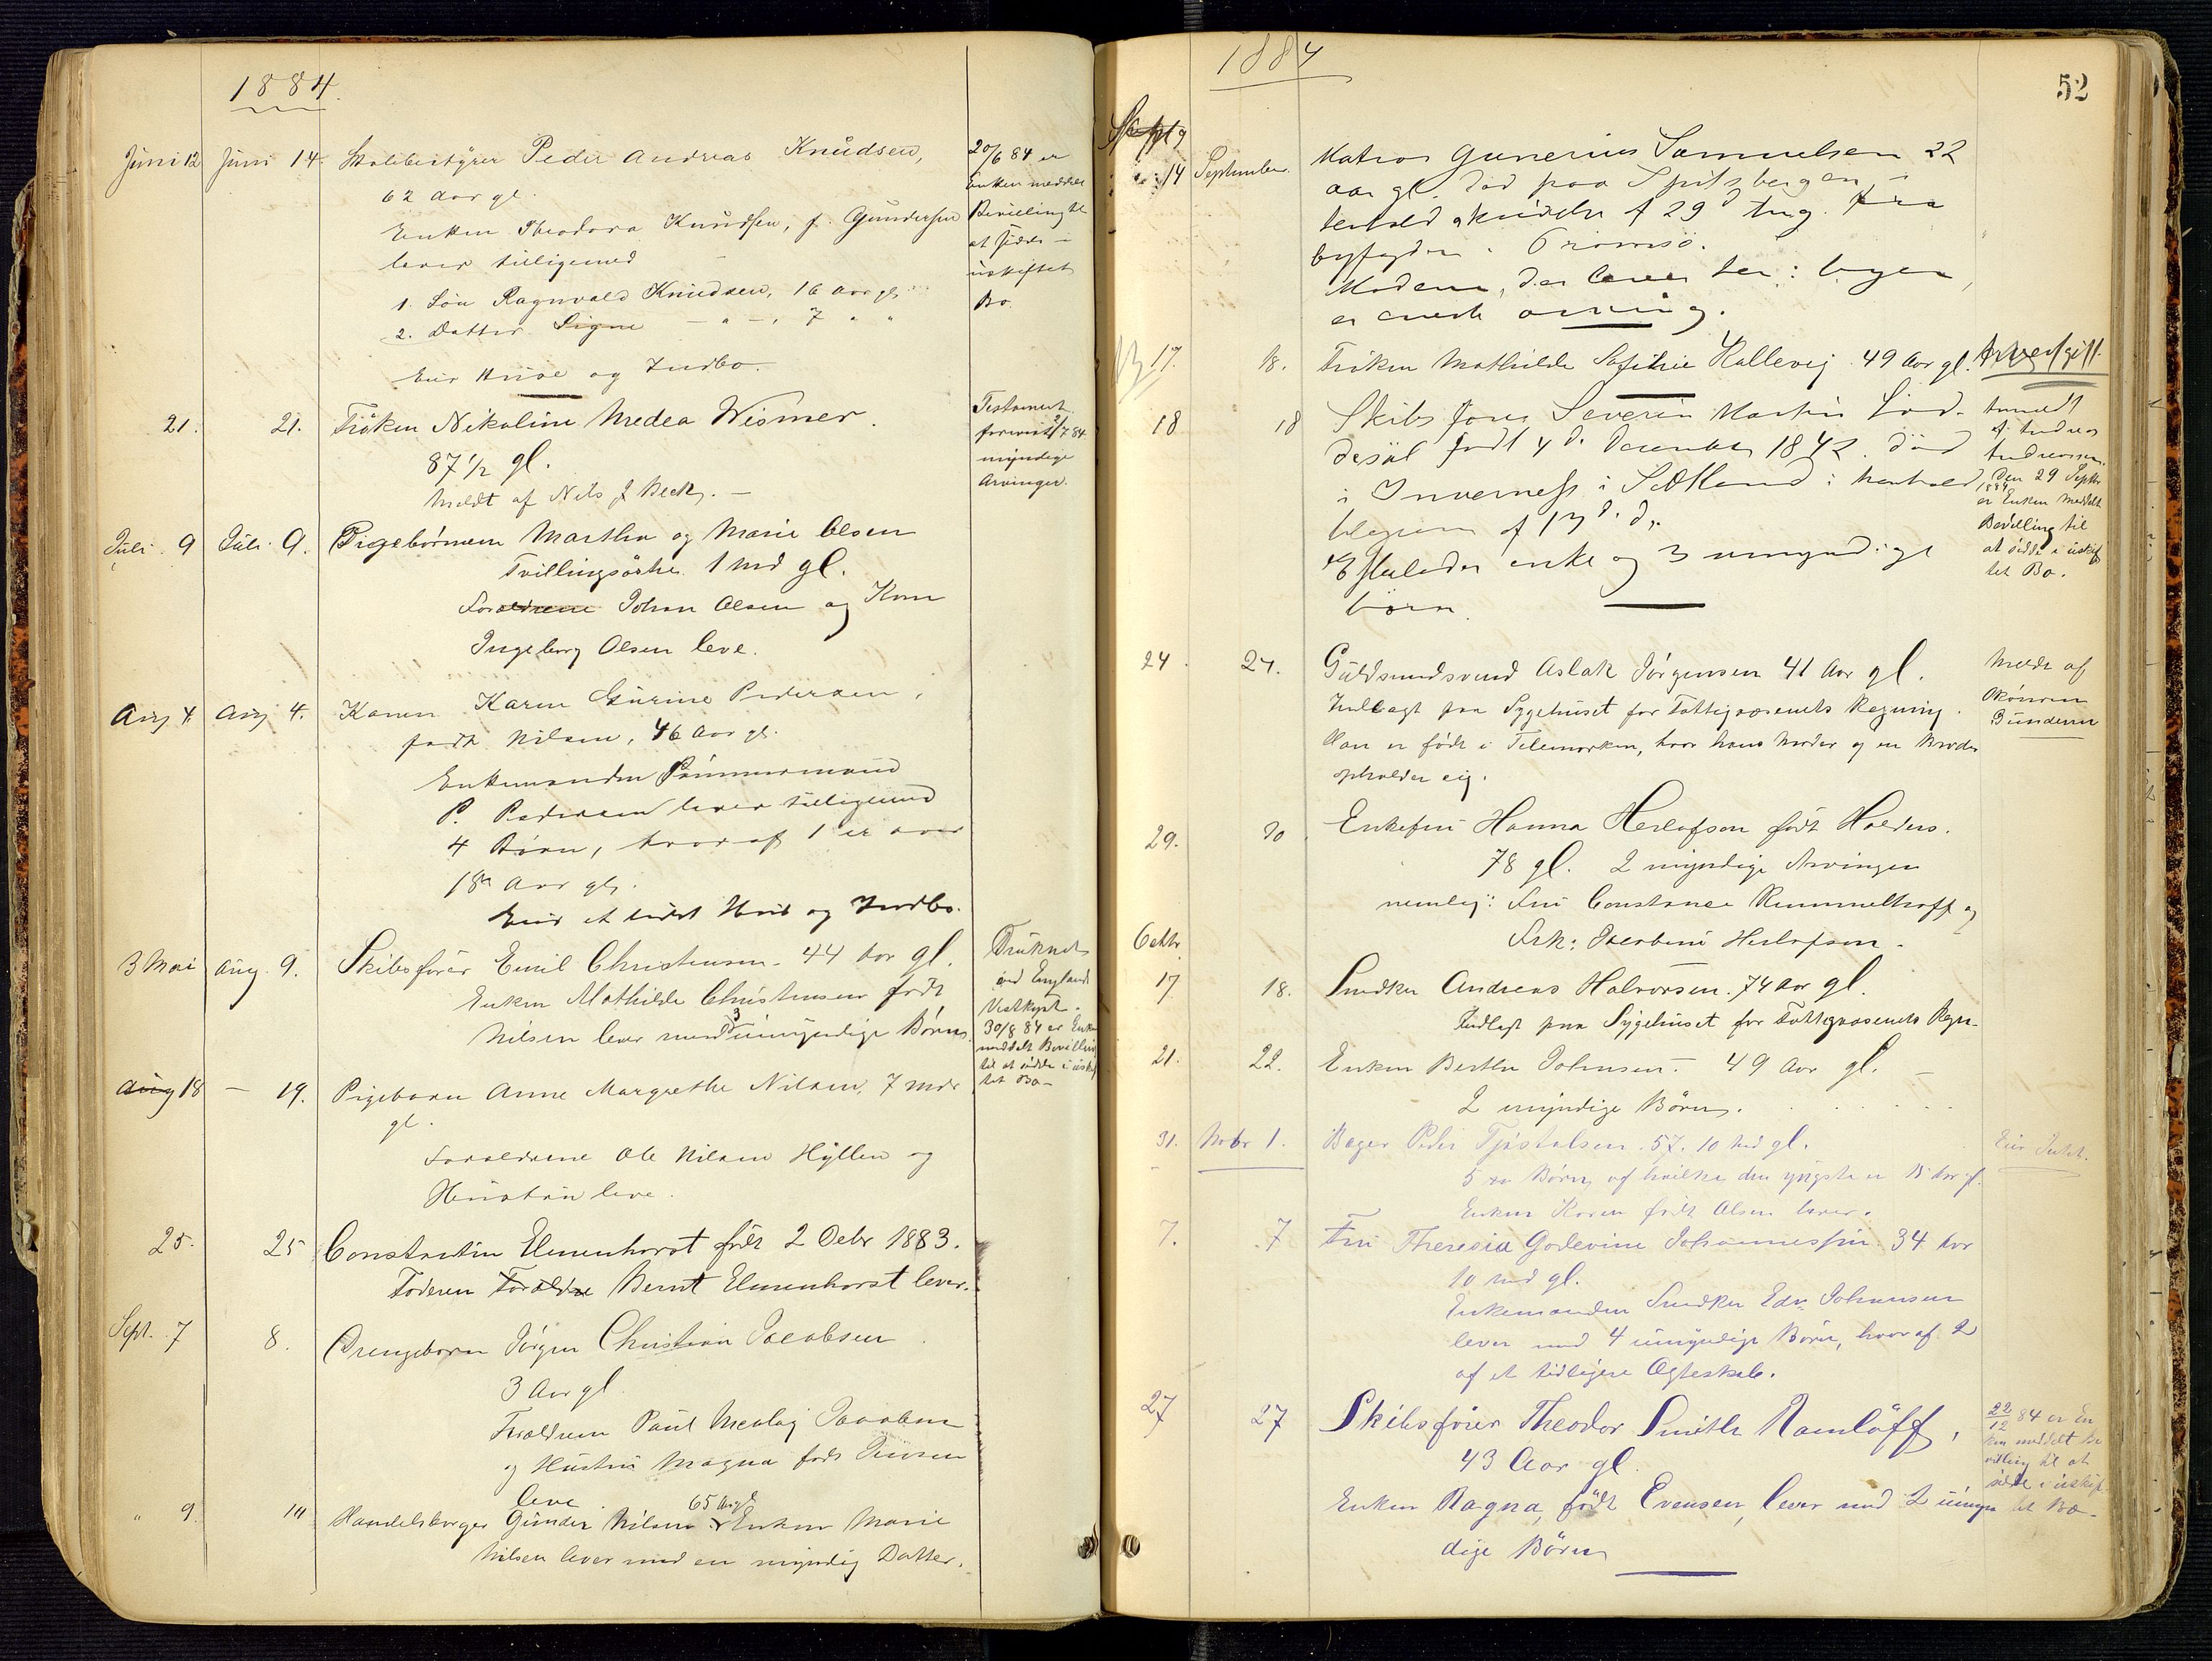 1884.
Juni 12 Juni 14. Skolebestyrer Peder Andreas Knudsen,
62 Aar gl
Enken Theodora Knudsen, f. Gundersen
lever tilligemed
1. Søn Ragnvald Knudsen, 16 Aar gl
2. Datter Signe — " —, 7 " "
Eier Huse og Indbo.
20/6 84 er
Enken meddelt
Bevilling til
at sidde i
uskiftet
Bo.
21. 21. Frøken Nikoline Medea Wismer.
87 1/2 gl.
Meldt af Nils J Beck. —
Testament
myndige
Arvinger.
Juli 9 Juli 9. Pigebørnene Martha og Marie Olsen
Tvillingsøstre. 1 Md gl.
Forældrene Johan Olsen og Kone
Ingeborg Olsen leve.
Aug 4. Aug 4. Konen Karen Gurine Pedersen,
født Nilsen, 46 Aar gl.
Enkemanden Tømmermand
P. Pedersen lever tilligemed
4 Børn, hvoraf 1 er over
18 Aar gl.
Eier et lidet Hus og Indbo.
3 Mai Aug. 9. Skibsfører Emil Christensen. 44 Aar gl.
Enken Mathilde Christensen født
Nilsen lever med 3 umyndige Børn.
Druknet
ved Englands
Vestkyst.
30/8 84 er Enken
meddelt Bevilling
til at sidde i uskif
tet Bo —
Aug 18 — 19. Pigebarn Anne Margrethe Nilsen, 7 Mdr
gl.
Forældrene Ole Nilsen Hyllen og
Hustru leve.
25. 25 Constantin Elmenhorst født 2 Octbr 1883.
Faderen Forældre Bernt Elmenhorst lever.
Sept. 7 8. Drengebarn Jørgen Christian Jacobsen
3 Aar gl
Forældrene Paul Nicolaj Jacobsen
og Hustru Magna født Jensen
leve.
" 9. 10 Handelsborger Gunder Nilsen 65 Aar gl Enken Marie
Nilsen lever med en myndig Datter.
1884
52
Septbr
14 September. Matros Gunerius Samuelsen 22
aar gl. død paa Spitsbergen i
henhold skrivelse af 29 d Aug. fra
byfogden i Tromsø.
Moderen, der lever her i byen,
er eneste arving.
17. 18. Frøken Mathilde Sofie Kallevig 49 Aar gl.
18 18 Skibsfører Severin Martin Lød-
desøl født 4 d. December 1842. død
i Inverness i Skotland i henhold
af 13 d. ds.
Efterlader enke og 3 umyndige
børn.
Anmeldt
af Andreas
Andreassen.
Den 29 Septbr
1884
er Enken meddelt
Bevilling til
at sidde i uskif
tet Bo.
24. 24. Guldsmedsvend Aslak Jørgensen 41 Aar gl.
Indlagt paa Sygehuset for Fattigvæsenets Regning.
Han er født i Telemarken, hvor hans Moder og en Broder
opholder sig.
Meldt af
Økonom
Gundersen
29. 30 Enkefru Hanna Herlofson født Holders.
78 gl. 2 myndige Arvinger
nemlig: Fru Constance Rummelhoff og
Frk: Jacobine Herlofson.
Octbr
17 18. Snedker Andreas Halvorsen. 74 Aar gl.
Indlagt paa Sygehuset for Fattigvæsenets Regn-
21. 22. Enken Berthe Johnsen. — 49 Aar gl. —
2 myndige Børn.
31. Novbr 1. Bager Peder Tjøstolsen. 57. 10 Md gl.
5 Børn, af hvilke den yngste er 15 Aar gl.
Enken Karen født Olsen lever.
7. 7 Fru Theresia Godevine Johannessen. 34 Aar
10 Md gl.
Enkemanden Snedker Edv. Johansen
lever med 4 umyndige Børn, hvoraf 2
af et tidligere Ægteskab.
27 27 Skibsfører Theodor Smith Ramløff,
43 Aar gl.
Enken Ragna, født Evensen, lever med 2 umyn
dige Børn
22/12 84 er En
ken meddelt Be
villing til at
sidde i uskif
tet Bo.